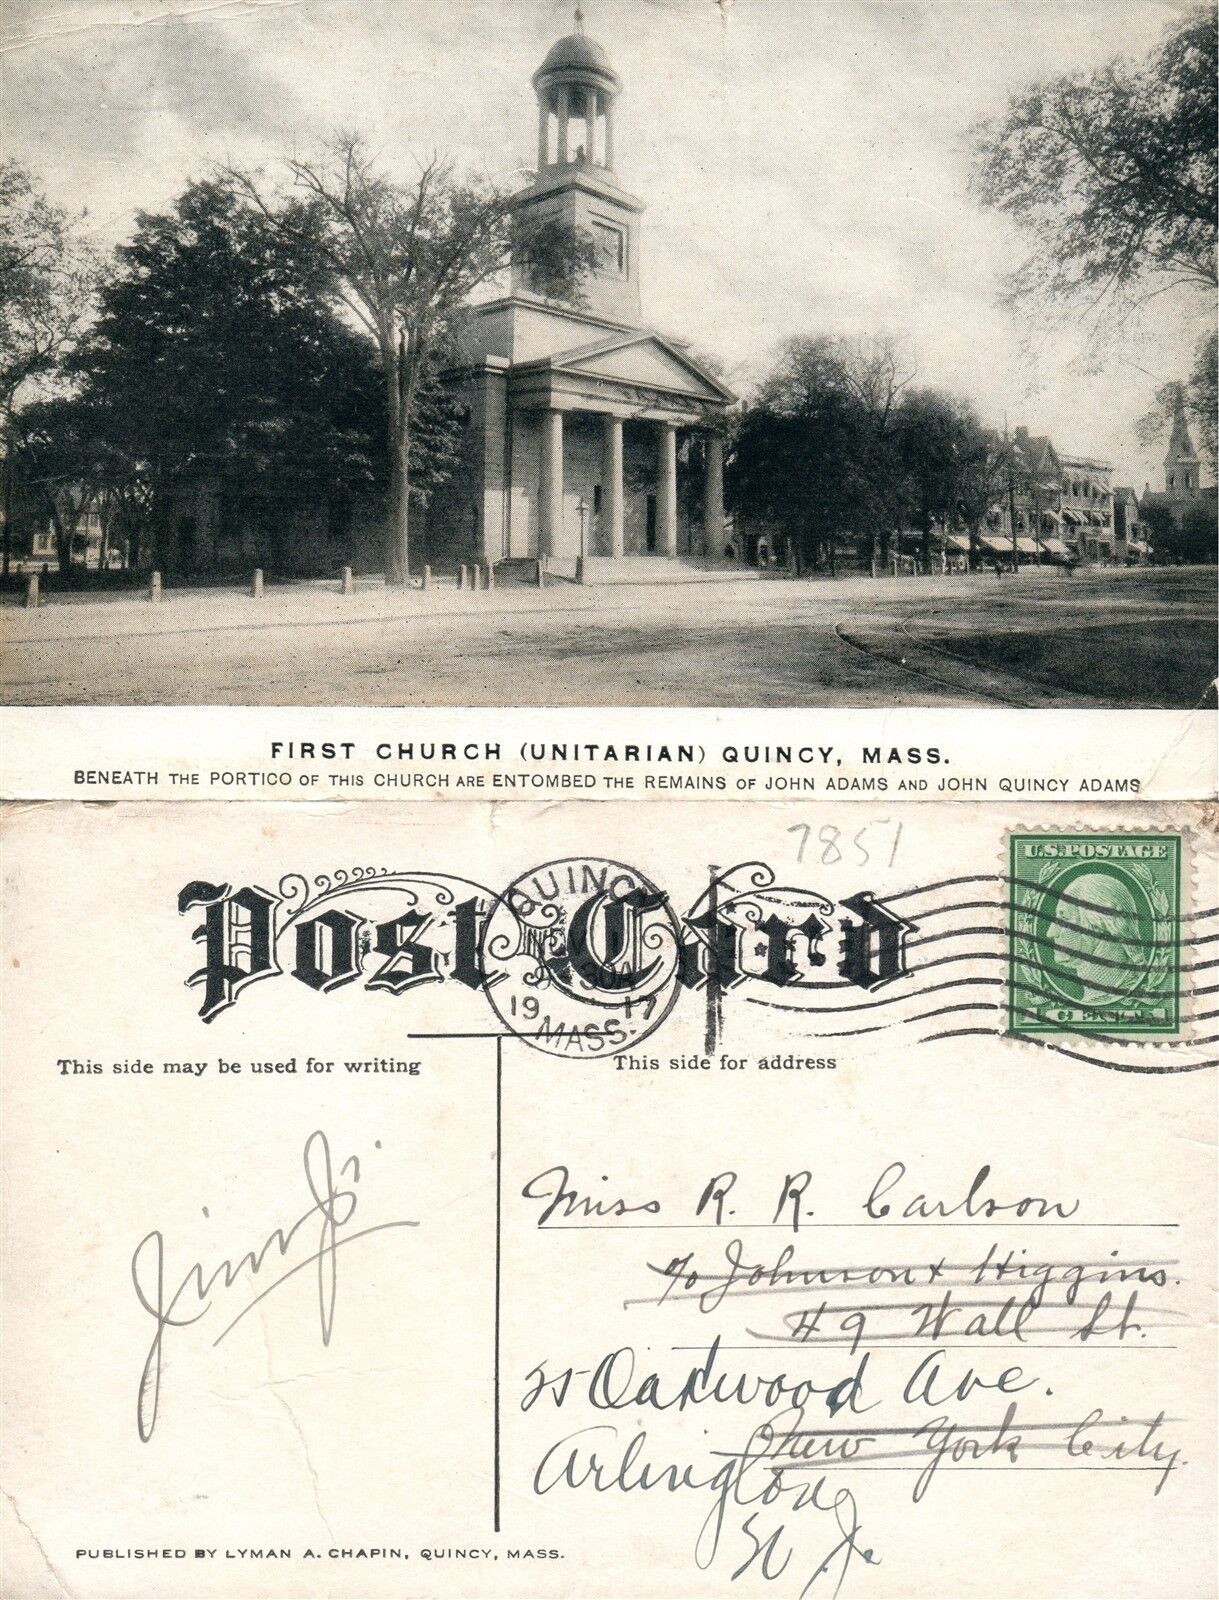 FIRST CHURCH (UNITARIAN) QUINCY, MASS.
BENEATH THE PORTICO OF THIS CHURCH ARE ENTOMBED THE REMAINS OF JOHN ADAMS AND JOHN QUINCY ADAMS
7851
U.S. POSTAGE
Post Card
QUINCY
30A
19 17
MASS.
This side may be used for writing
This side for address
Miss R. R. Carlson
c/o Johnson & Higgins.
49 Wall St.
25 Oakwood Ave.
New York City.
Arlington
N J.
PUBLISHED BY LYMAN A. CHAPIN, QUINCY, MASS.